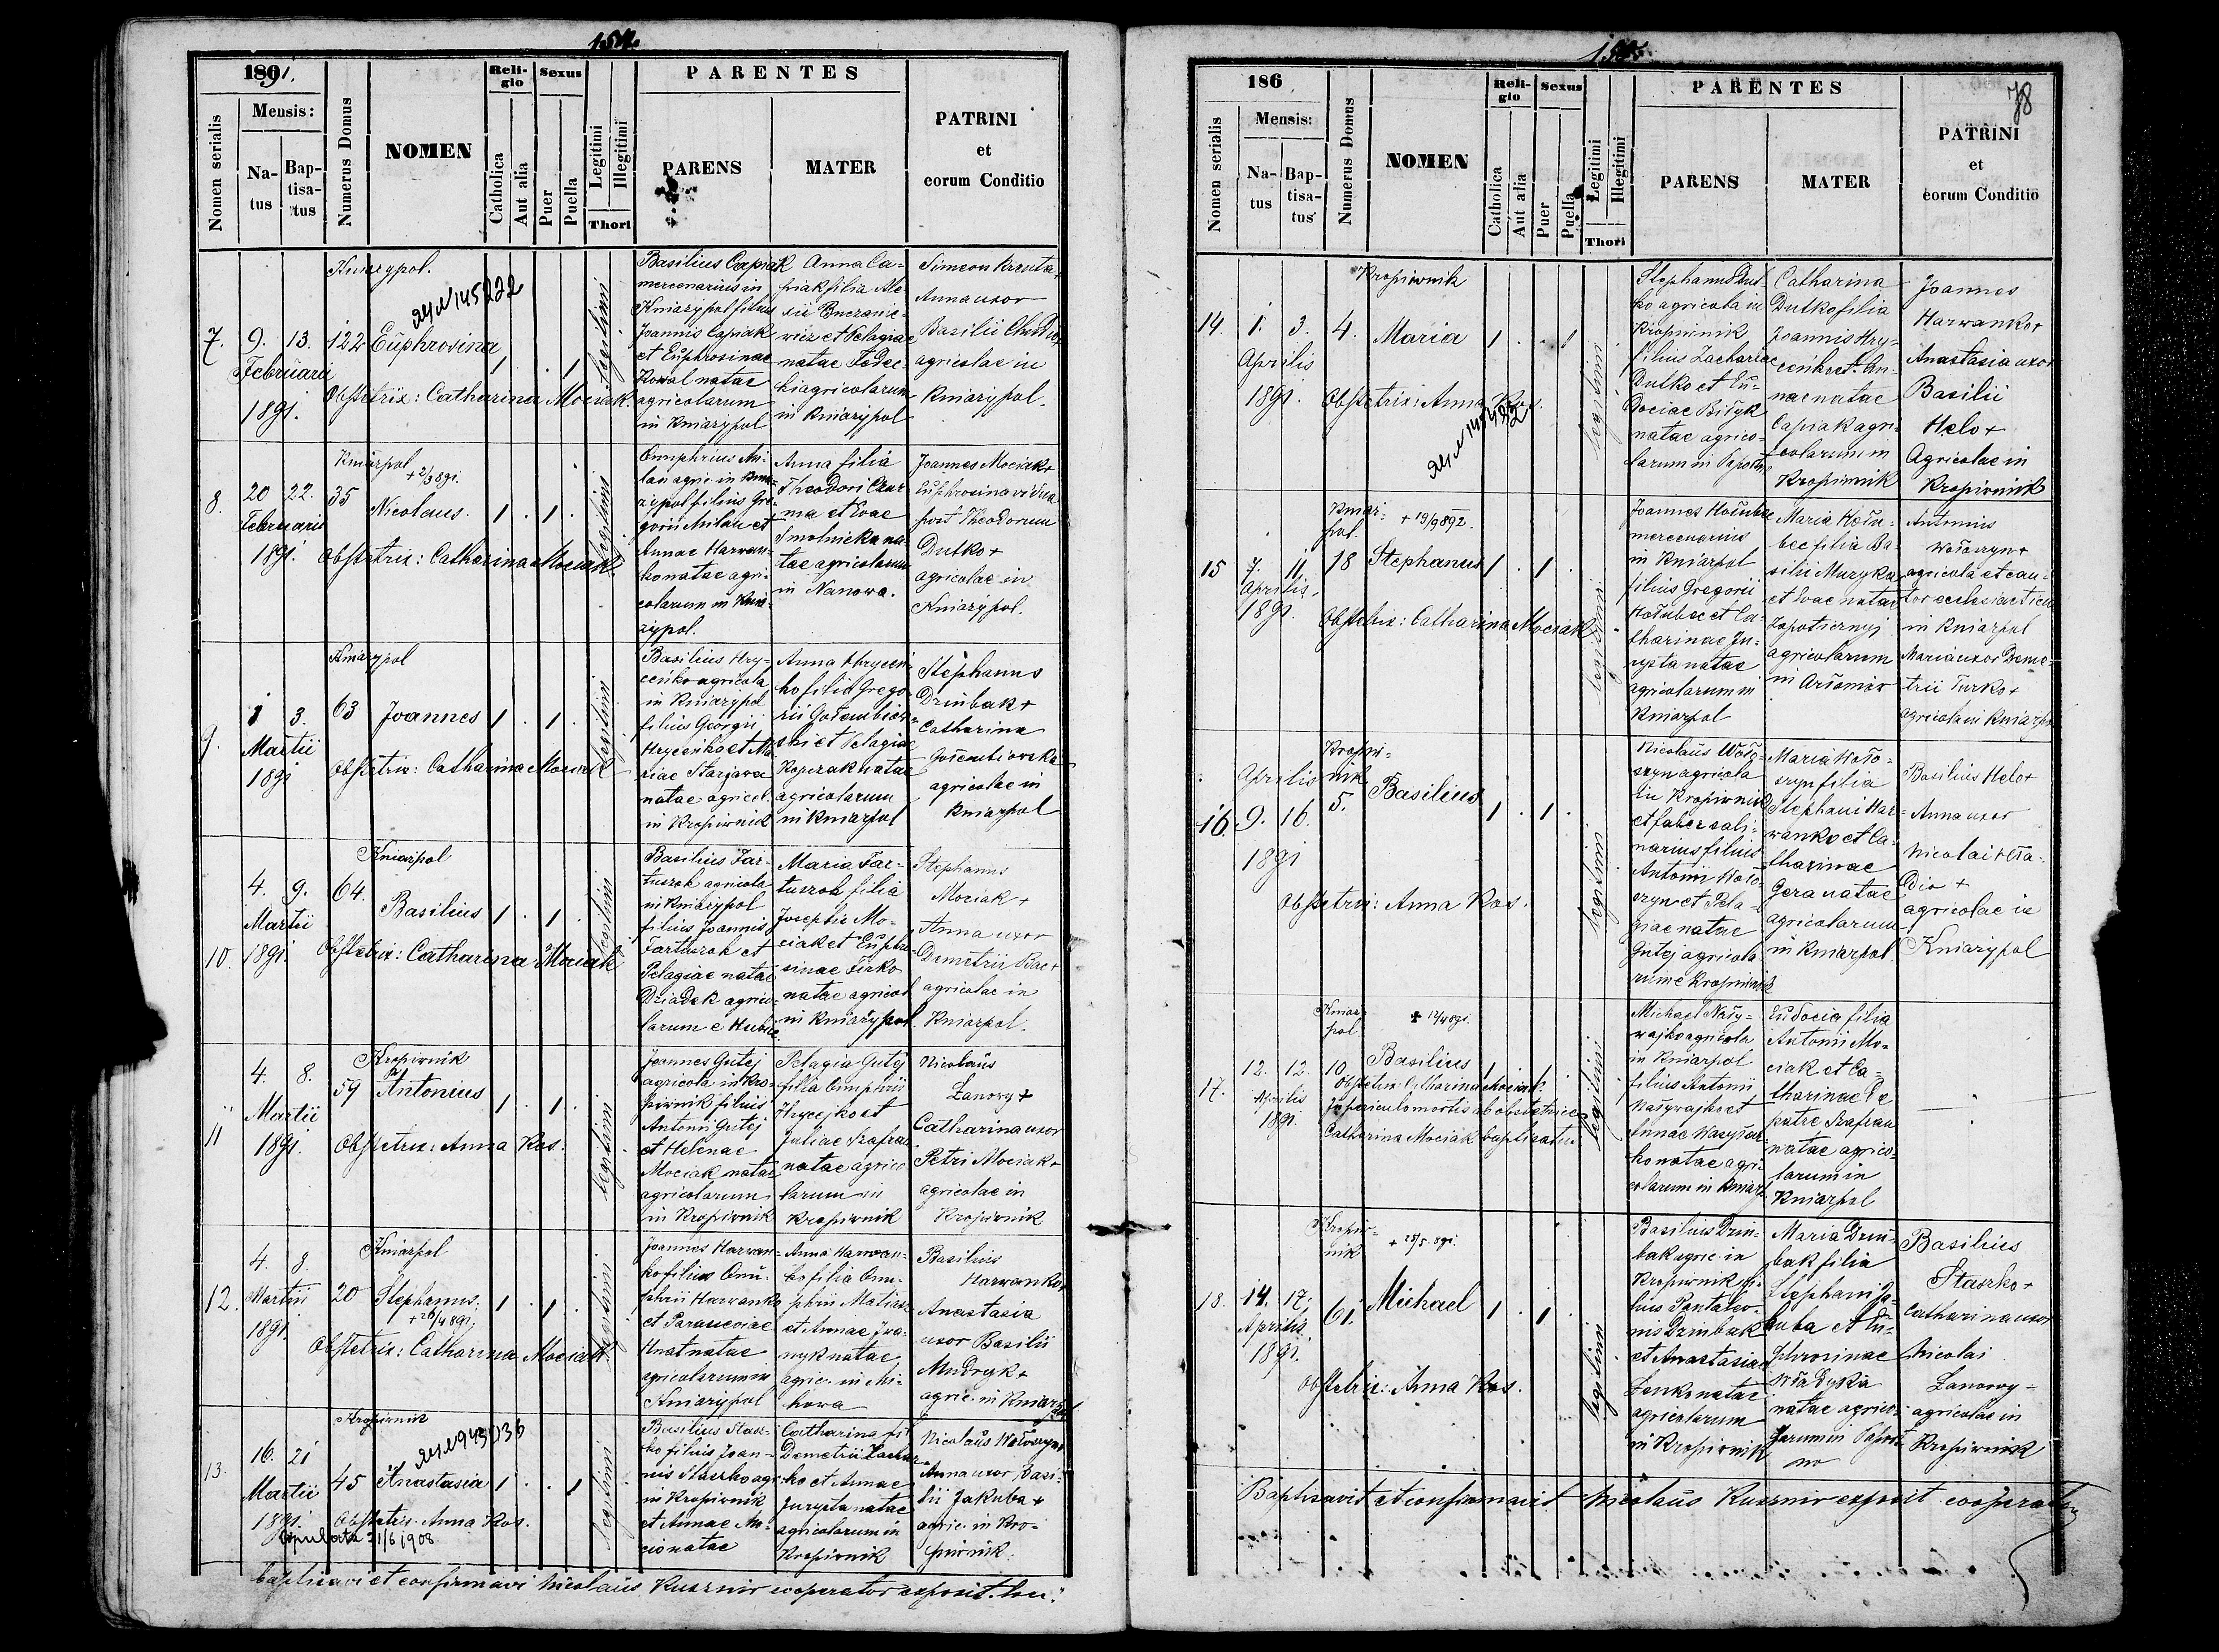 154.
1891.
Nomen serialis
Mensis:
Na-
tus
Bap-
tisa-
tus
Numerus Domus
NOMEN
Reli-
gio
Catholica
Aut alia
Sexus
Puer
Puella
Legitimi
Illegitimi
Thori
PARENTES
PARENS
MATER
PATRINI
et
eorum Conditio
7.
9. 13.
Februarii
1891.
Kniazypol.
145222
122 Euphrosina
1 . . 1
Obstetrix: Catharina Mociak.
legitimi
Basilius Capiak
mercenarius in
Kniazypol filius
Joannis Capiak
et Euphrosinae
Kowal natae
agricolarum
in Kniazypol
Anna Ca-
piak filia Ale-
natae Fedec-
ki agricolarum
in Kniazypol
Simeon
Anna uxor
Basilii
agricolae in
Kniazypol.
8.
20 22.
Februarii
1891.
Kniazpol
+ 2/3 891.
35 Nicolaus.
1 . 1 .
Obstetrix: Catharina Mociak
legitimi
Onuphrius Mi-
lan agric. in Knia-
zypol filius Gre-
gorii Milan et
Annae Harwan-
ko natae agri-
colarum in Knia-
zypol.
Anna filia
Theodori
et Evae
Smolnicka na-
tae agricolarum
in Nanowa.
Joannes Mociak +
Euphrosina vidua
post Theodorum
Dutko +
agricolae in
Kniazypol.
9.
1 3.
Martii
1891
Kniazypol
63 Joannes
1 . 1 .
Obstetrix: Catharina Mociak
legitimi
Basilius Hry-
ceńko agricola
in Kniazypol
filius Georgii
Hryceńko et Ma-
riae Starjawa
natae agricol.
in Kropiwnik
Anna Hryceń-
ko filia Grego-
rii Gołembiow-
ski et Pelagiae
Kopczak natae
agricolarum
in Kniazpol
Stephanus
Drinbak +
Catharina
Gołembiowska
agricolae in
Kniazpol
10.
4. 9.
Martii
1891.
Kniazpol
64. Basilius
1 . 1 .
Obstetrix: Catharina Mociak
legitimi
Basilius Far-
tuszok agricola
in Kniazypol
filius Joannis
Fartuszok et
Pelagiae natae
Dziadek agrico-
larum e Hubice
Maria Far-
tuszok filia
Josephi Mo-
ciak et Euphro-
sinae Firko
natae agricol.
in Kniazypol.
Stephanus
Mociak +
Anna uxor
Demetrii Bac +
agricolae in
Kniazpol.
11
4. 8.
Martii
1891.
Kropiwnik
59 Antonius
1 . 1 .
Obstetrix: Anna Kos.
legitimi
Joannes Gutej
agricola in Kro-
piwnik filius
Antonii Gutej
et Helenae
Mociak natae
agricolarum
in Kropiwnik
Pelagia Gutej
filia Onuphrii
Hrycejko et
Juliae Szafran
natae agrico-
larum in
Kropiwnik
Nicolaus
Lanowy +
Catharina uxor
Petri Mociak +
agricolae in
Kropiwnik
12.
4. 8.
Martii
1891.
Kniazpol
20 Stephanus.
+ 26/4 891.
1 . 1 .
Obstetrix: Catharina Mociak
legitimi
Joannes Harwan-
ko filius Onu-
phrii Harwanko
et Parasceviae
Hnat natae
agricolarum in
Kniazypol
Anna Harwan-
ko filia Onu-
phrii
et Annae Iwa-
nyk natae
agric. in
Basilius
Harwanko +
Anastasia
uxor Basilii
Mudryk +
agric. in Kniazpol
13.
16. 21
Martii
1891.
Kropiwnik
943136
45 Anastasia
1 . . 1
Obstetrix: Anna Kos.
Copulata 21/6 1908.
legitimi
Basilius Stasz-
ko filius Joan-
nis Staszko agr.
in Kropiwnik
et Annae
natae
Catharina fil
Demetrii
et Annae
Jurysta natae
agricolarum in
Kropiwnik
Nicolaus Wołoszyn +
Anna uxor Basi-
lii Jakuba +
agric. in Kro-
piwnik.
baptisavi et confirmavi Nicolaus Kuźnir cooperator exposit.
155.
78
186
Nomen serialis
Mensis:
Na-
tus
Bap-
tisa-
tus
Numerus Domus
NOMEN
Reli-
gio
Catholica
Aut alia
Sexus
Puer
Puella
Legitimi
Illegitimi
Thori
PARENTES
PARENS
MATER
PATRINI
et
eorum Conditio
14.
1. 3.
Aprilis
1891.
Kropiwnik
4. Maria
1 . . 1
Obstetrix: Anna Kos.
legitimi
Stephanus Dut-
ko agricola in
Kropiwnik
filius Zachariae
Dutko et Eu-
dociae Biłyk
natae agrico-
larum in
Catharina
Dutko filia
Joannis Hry-
ceńko et An-
nae natae
Capiak agri-
colarum in
Kropiwnik
Joannes
Harwanko +
Anastasia uxor
Basilii
Helo +
Agricolae in
Kropiwnik
15
7. 11
Aprilis
1891.
Kniaz-
pol.
+ 19/9 892.
18 Stephanus
1 . 1 .
Obstetrix: Catharina Mociak
legitimi
Joannes Hołubec
mercenarius
in Kniazpol
filius Gregorii
Hołubec et Ca-
tharinae Ju-
rysta natae
agricolarum in
Kniazpol
Maria Hołu-
bec filia Ba-
silii Muzyka
et Evae natae
agricolarum
in
Antonius
Wołoszyn +
agricola et can-
tor ecclesiasticus
in Kniazpol
Maria uxor Deme-
trii Turko +
agricola in Kniazpol
16
Aprilis
9. 16.
1891
Kropiw-
nik
5. Basilius
1 . 1 .
Obstetrix: Anna Kos.
legitimi
Nicolaus Woło-
szyn agricola
in Kropiwnik
et faber sali-
narius filius
Antonii Woło-
szyn et Pela-
giae natae
Gutej agricola-
rum e Kropiwnik
Maria Woło-
szyn filia
Stephani Har-
wanko et Ca-
tharinae
Gera natae
agricolarum
in Kniazpol.
Basilius Helo +
Anna uxor
Nicolai
agricolae in
Kniazypol
17.
12. 12.
Aprilis
1891.
Kniaz-
pol
+ 12/4 891.
10 Basilius
1 . 1 .
Obstetrix Catharina Mociak.
In periculo mortis ab obstetrice
Catharina Mociak baptisatus
legitimi
Michael Nały-
wajko agricola
in Kniazpol
filius Antonii
Nalywajko et
Annae
ko natae agri-
colarum in Kniazp
Eudocia filia
Antonii Mo-
ciak et Ca-
tharinae de
patre Szafran
natae agrico-
larum in
Kniazpol
18.
14. 17.
Aprilis
1891.
Kropiw-
nik
+ 28/5 891.
61. Michael
1 . 1 .
Obstetrix: Anna Kos.
legitimi
Basilius Drin-
bak agric. in
Kropiwnik fi-
lius Pantaleo-
nis Drinbak
et Anastasiae
Lenko natae
agricolarum
in Kropiwnik
Maria Drin-
bak filia
Stephani Ja-
kuba et Eu-
phrosinae
Władyka
natae agrico-
larum in
Basilius
Staszko +
Catharina uxor
Nicolai
Lanowy
agricolae in
Kropiwnik
Baptisavit et confirmavit Nicolaus Kuźnir exposit cooperator